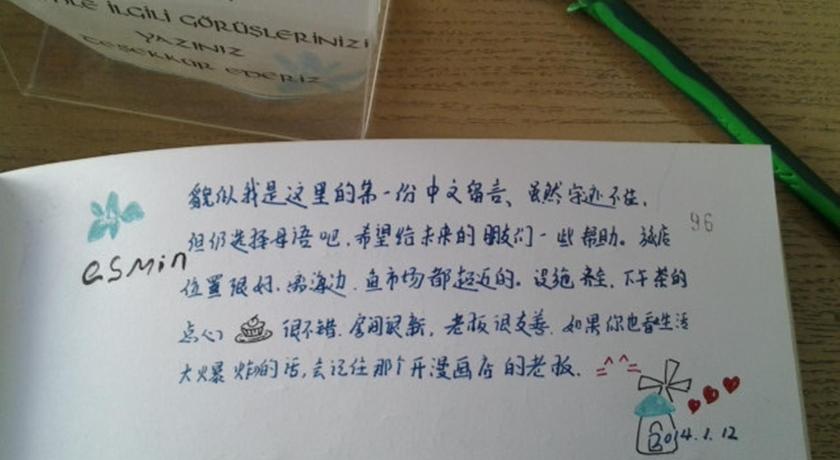 İLE İLGİLİ GÖRÜŞLERİNİZİ
YAZINIZ
TEŞEKKÜR EDERİZ
貌似我是这里的第一份中文留言、虽然字迹不佳,
96
但仍选择母语吧,希望给未来的朋友们一些帮助。旅店
esmin
位置很好,离海边、鱼市场都超近的。设施齐全,下午茶的
点心 很不错,房间很新,老板很友善,如果你也看生活
大爆炸的话,会记住那个开漫画店的老板. =^^=
2014.1.12